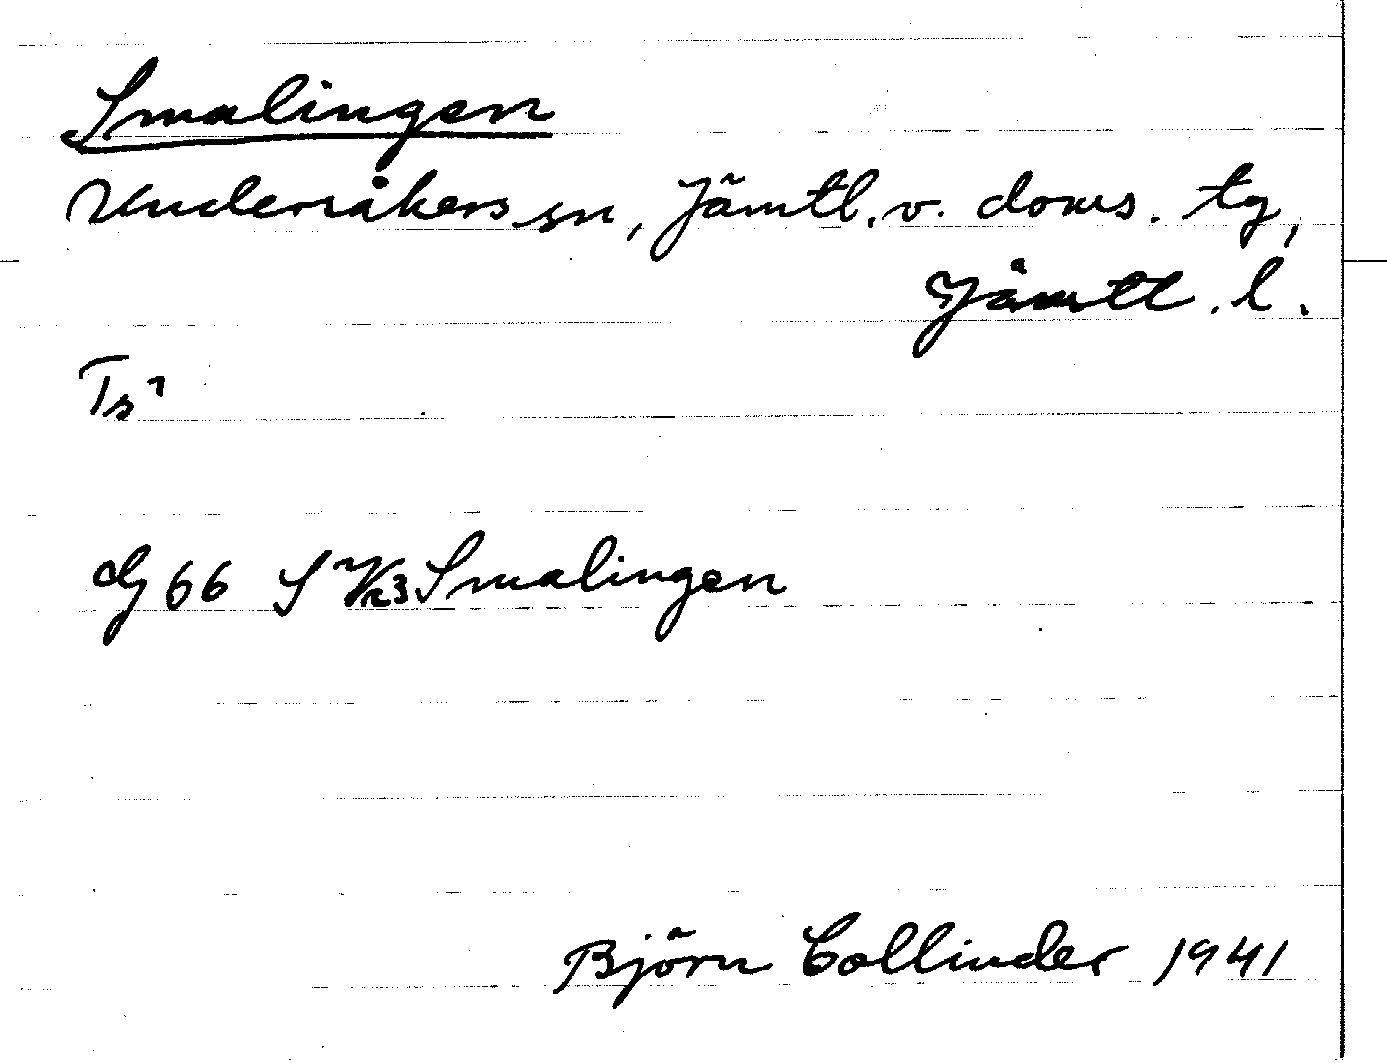 Smalingen
Undersåkers sn, Jämtl. v. doms. tg,
Jämtl. l.
Ts¹
G 66 S Smalingen
Björn Collinder 1941